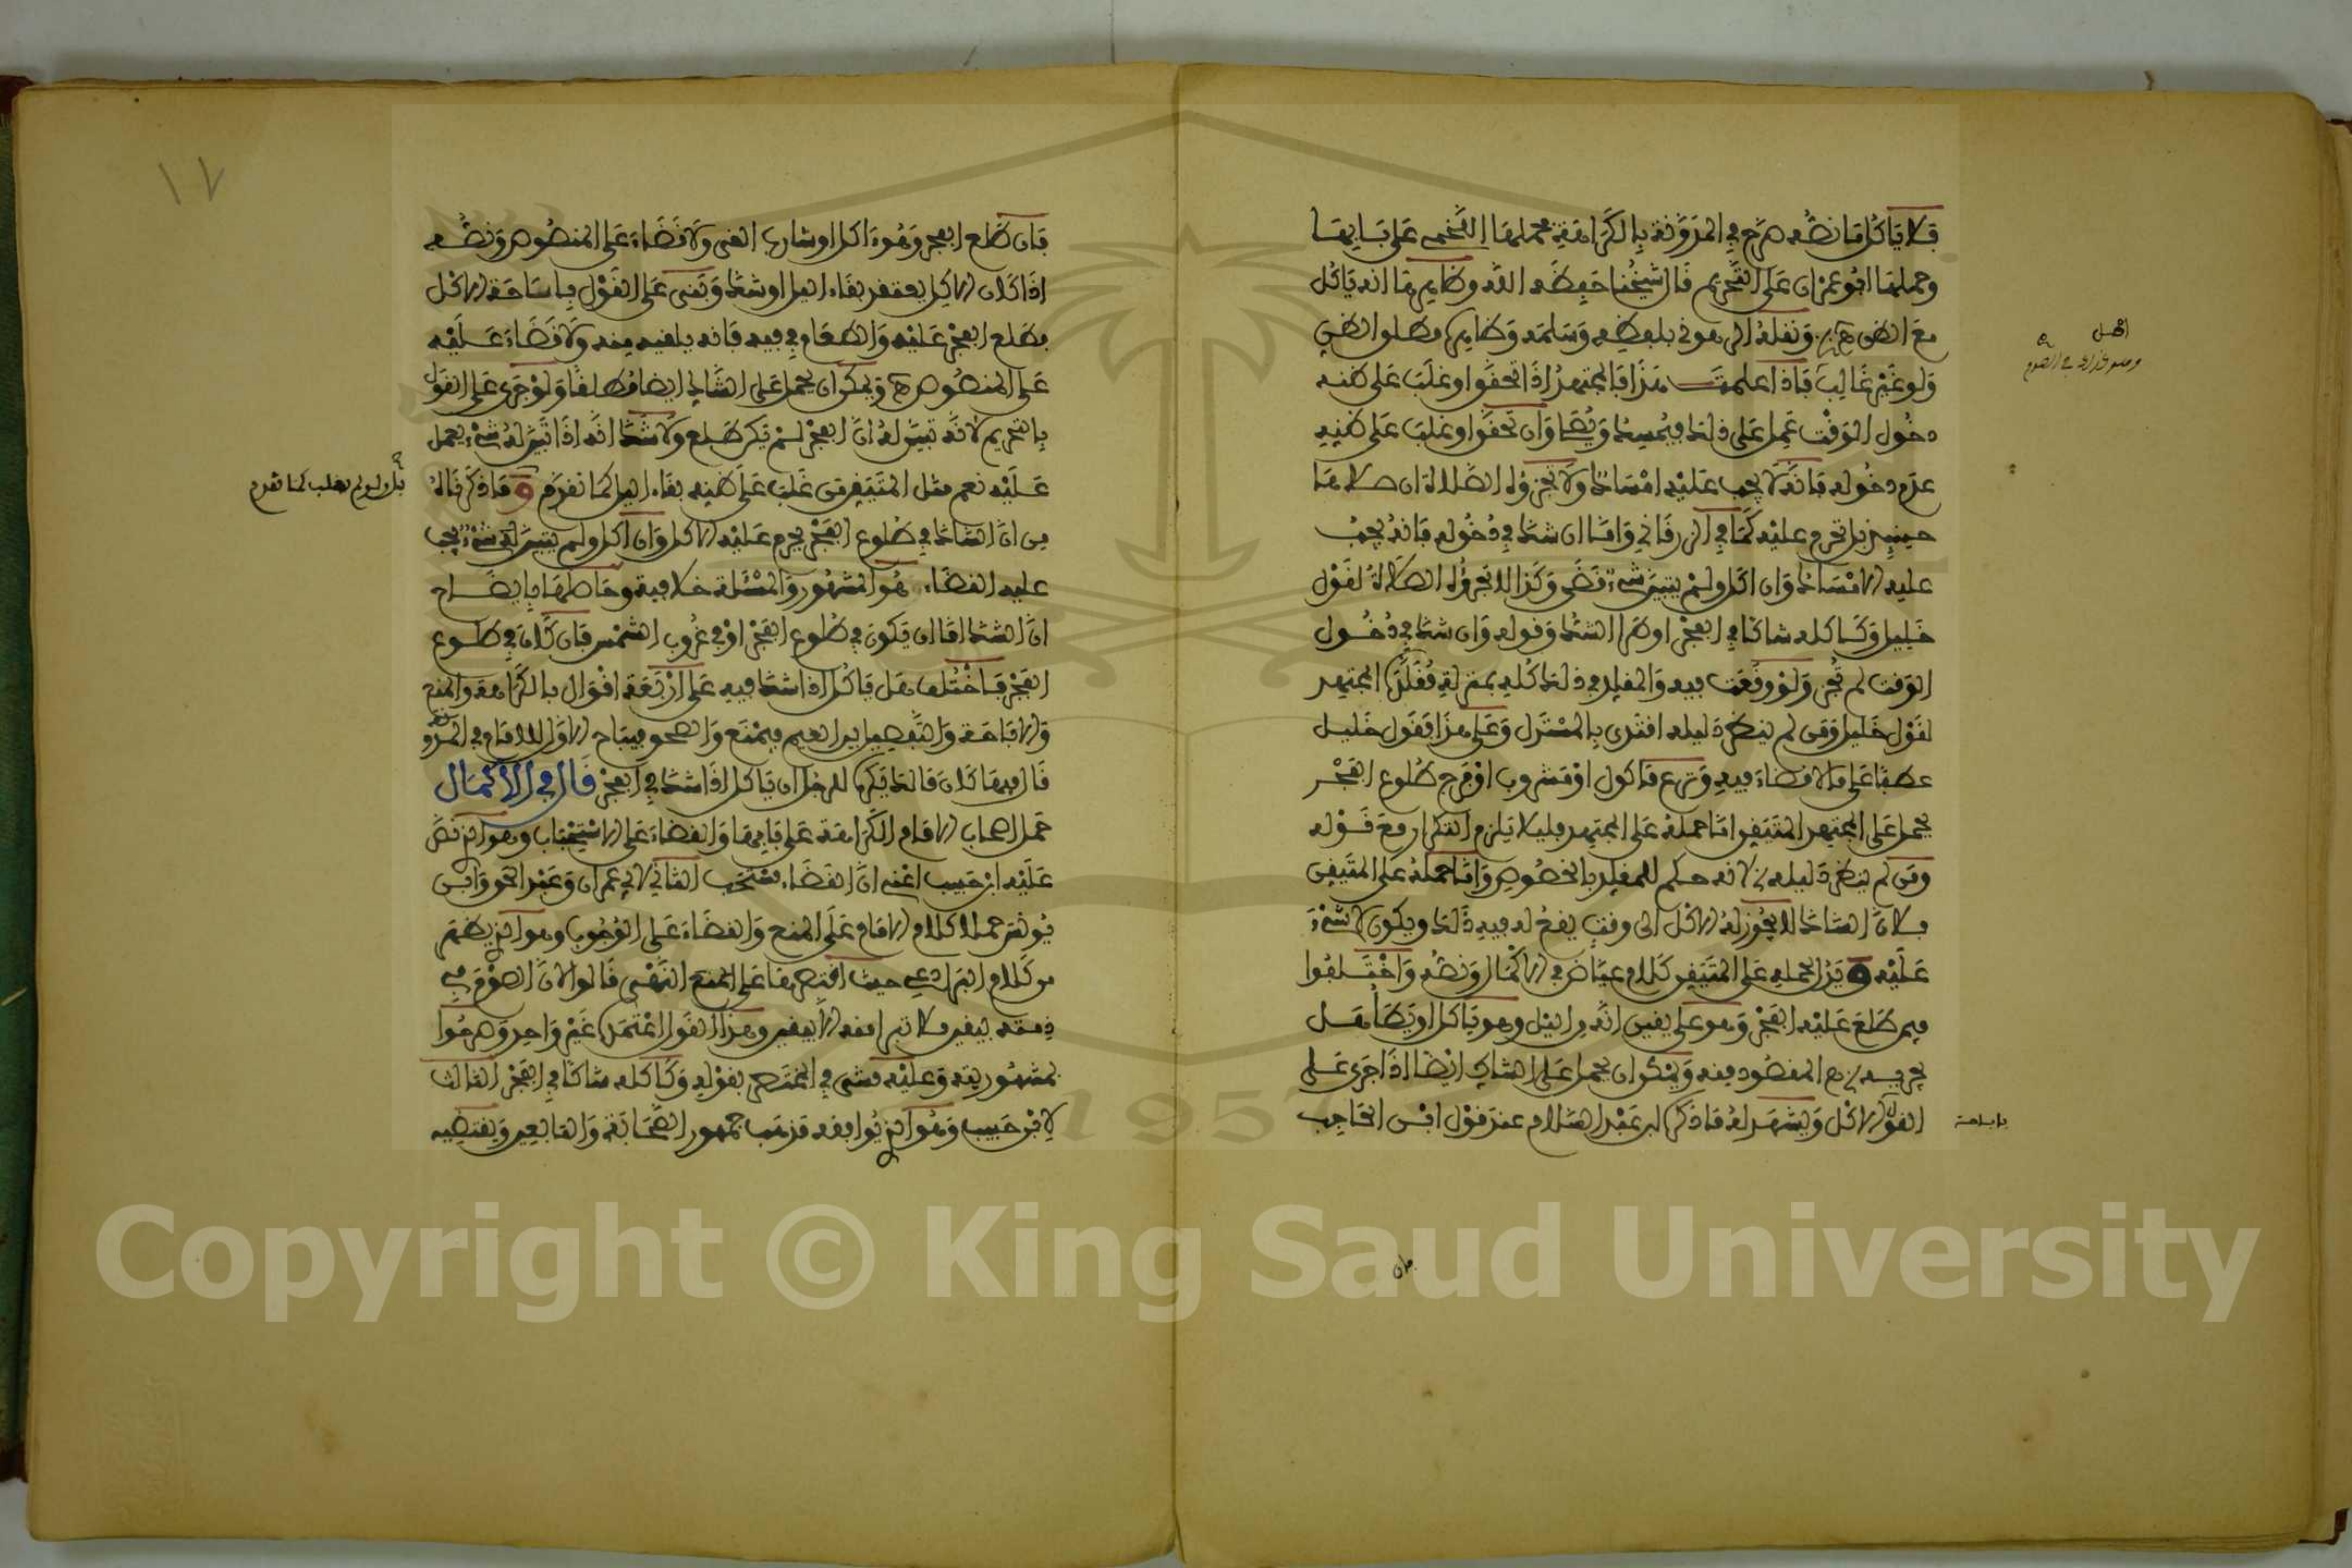 فلا ياكل ما نصه صرح في المدونة بالكراهة فحملها اللخمي على بابها
وحملها ابو عمران على التحريم قال شيخنا حفظه الله وظاهرها انه ياكل
مع الظن هـ ونقله الرهوني بلفظه وسلمه وظاهره مطلق الظن
ولو غير غالب فاذا علمت هذا فالمجتهد اذا تحقق او غلب على ظنه
دخول الوقت عمل على ذلك فيمسك ويصلي وان تحقق او غلب على ظنه
عدم دخوله فانه لا يجب عليه امساك ولا تجزئه الصلاة ان صلاها
حينئذ بل تحرم عليه كما في الزرقاني واما ان شك في دخوله فانه يجب
عليه الامساك وان اكل ولم يتبين شيء قضى وكذا لا تجزئه الصلاة لقول
خليل وكاكله شاكا في الفجر او طرا الشك وقوله وان شك في دخول
الوقت لم تجز ولو وقعت فيه والمقلد في ذلك كله بمنزلة مقلده المجتهد
لقول خليل ومن لم ينظر دليله اقتدى بالمستدل وعلى هذا فقول خليل
عطفا على ما لا قضاء فيه ونزع ماكول او مشروب او فرج طلوع الفجر
يحمل على المجتهد المتيقن اما حمله على المجتهد فليلا يلزم التكرار مع قوله
ومن لم ينظر دليله لانه حكم للمقلد بالخصوص واما حمله على المتيقن
فلان الشاك لا يجوز له الاكل الى وقت يقع له فيه ذلك ويكون لا شيء
عليه ويدل لحمله على المتيقن كلام عياض في الاكمال ونصه واختلفوا
فيمن طلع عليه الفجر وهو على يقين انه في الليل وهو ياكل او يطا هل
يجزيه هـ المقصود منه ويمكن ان يحمل على الشاك ايضا اذا جرى على
القول الاكل ويشهد له ما ذكره ابن عبد السلام عند قول ابن الحاجب
باباحة
اصل
فان
١٧
فان طلع الفجر وهو اكل او شارب القى ولا قضاء على المنصوص ونصه
اذا كان الاكل يعتقد بقاء الليل او شك وبنى على القول باباحة الاكل
فطلع الفجر عليه والطعام في فيه فانه يلقيه منه ولا قضاء عليه
على المنصوص هـ ويمكن ان يحمل على الشاك ايضا مطلقا ولو جرى على القول
بالتحريم لانه تبين له ان الفجر لم يكن طلع ولا شك انه اذا تبين له شيء يعمل
عليه نعم مثل المتيقن من غلب على ظنه بقاء الليل كما تقدم وما ذكرناه
بل ولو لم يغلب كما تقدم
من ان الشاك في طلوع الفجر يحرم عليه الاكل وان اكل ولم يتبين له شيء يجب
عليه القضاء هو المشهور والمسئلة خلافية وحاصلها بايضاح
ان الشك اما ان يكون في طلوع الفجر او في غروب الشمس فان كان في طلوع
الفجر فاختلف هل ياكل اذا شك فيه على اربعة اقوال بالكراهة والمنع
والاباحة والتفصيل بين الغيم فيمنع والصحو فيباح الاول للامام في المدونة
قال فيها كان مالك يكره للرجل ان ياكل اذا شك في الفجر قال في الاكمال
حمل اصحاب الامام الكراهة على بابها والقضاء على الاستحباب وهو الذي نص
عليه ابن حبيب اعني ان القضاء مستحب الثاني لابي عمران وعبد الحق وابن
يونس حمل كلام الامام على المنع والقضاء على الوجوب وهو الذي يظهر
من كلام البراذعي حيث اقتصر فيها على المنع النفسي قالوا لان الصوم في
ذمته بيقين فلا تبرا منه الا بيقين وهذا القول اعتمده غير واحد وصرحوا
بمشهوريته وعليه مشى في المختصر بقوله وكاكله شاكا في الفجر الثالث
لابن حبيب وهو الذي يوافقه مذهب جمهور الصحابة والتابعين ويقتضيه
Copyright © King Saud University
1957